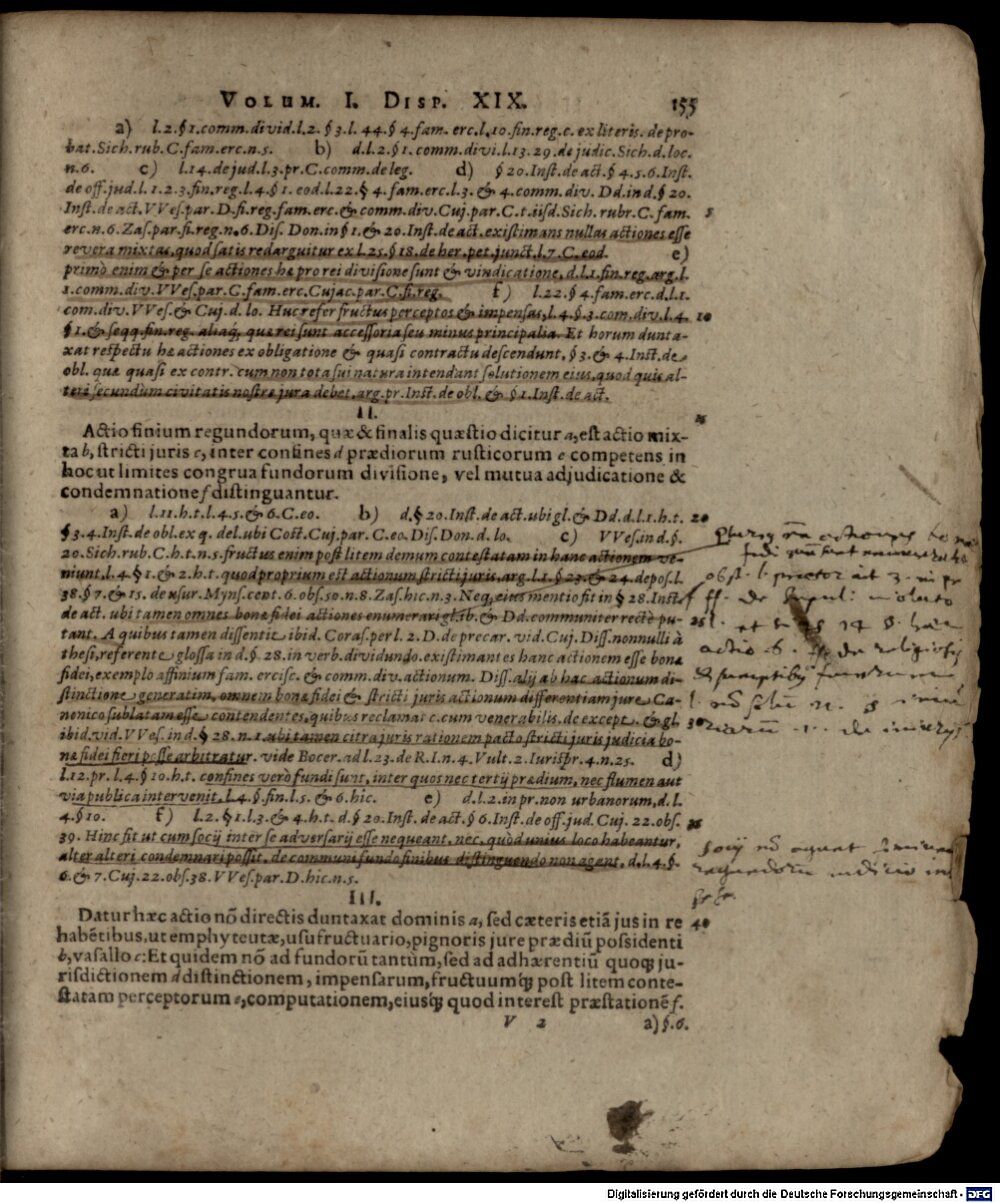 VOLUM. I. DISP. XIX. 155
a) l.2.§1.comm.divid.l.2.§3.l.44.§4.fam.erc.l.10.fin.reg.c.ex literis.de pro-
bat.Sich.rub.C.fam.erc.n.5. b) d.l.2.§1.comm.divi.l.13.29.de judic.Sich.d.loc.
n.6. c) l.14.de jud.l.3.pr.C.comm.de leg. d) §20.Inst.de act.§4.5.6.Inst.
de off.jud.l.1.2.3.fin.reg.l.4.§1.eod.l.22.§4.fam.erc.l.3.&4.comm.div.Dd.in d.§20.
Inst.de act.VVes.par.D.fi.reg.fam.erc.& comm.div.Cuj.par.C.t.iisd.Sich.rubr.C.fam. 5
erc.n.6.Zas.par.fi.reg.n.6.Dis.Don.in §1.& 20.Inst.de act.existimans nullas actiones esse
revera mixtas,quod satis redarguitur ex l.25.§18.de her.pet.junct.l.7.C.eod. e)
primò enim & per se actiones hæ pro rei divisione sunt & vindicatione,d.l.1.fin.reg.arg.l.
1.comm.div.VVes.par.C.fam.erc.Cujac.par.C.fi.reg. f) l.22.§4.fam.erc.d.l.1.
com.div.VVes.& Cuj.d.lo. Huc refer fructus perceptos & impensas,l.4.§3.com.div.l.4. 10
§1.& seqq.fin.reg.aliaq́; quæ rei sunt accessoria seu minus principalia. Et horum dunta-
xat respectu hæ actiones ex obligatione & quasi contractu descendunt,§3.&4.Inst.de
obl. quæ quasi ex contr.cum non tota sui natura intendant solutionem eius,quod quis al-
teri secundùm civitatis nostræ jura debet,arg.pr.Inst.de obl.& §1.Inst.de act.
II. 15
Actio finium regundorum, quæ & finalis quæstio dicitur a, est actio mix-
ta b, stricti juris c, inter confines d prædiorum rusticorum e competens in
hoc ut limites congrua fundorum divisione, vel mutua adjudicatione &
condemnatione f distinguantur.
a) l.11.h.t.l.4.5.&6.C.eo. b) d.§20.Inst.de act.ubi gl.& Dd.d.l.1.h.t. 20
§3.4.Inst.de obl.ex q. del.ubi Cost.Cuj.par.C.eo.Dis.Don.d.lo. c) VVes.in d.§.
20.Sich.rub.C.h.t.n.5.fructus enim post litem demum contestatam in hanc actionem ve-
niunt,l.4.§1.&2.h.t.quod proprium est actionum stricti juris,arg.l.1.§23.&24.depos.l.
38.§7.&15.de usur.Myns.cent.6.obs.50.n.8.Zas.hic.n.3.Neq́; eius mentio fit in §28.Inst.
de act. ubi tamen omnes bonæ fidei actiones enumerari gl.ib.& Dd.communiter rectè pu- 25
tant. A quibus tamen dissentit ibid. Coras.per l.2.D.de precar.vid.Cuj.Diss.nonnulli à
thesi,referente glossa in d.§.28.in verb.dividundo.existimantes hanc actionem esse bonæ
fidei,exemplo affinium fam.ercisc.& comm.div.actionum. Diss.alij ab hac actionum di-
stinctione generatim,omnem bonæ fidei & stricti juris actionum differentiam jure Ca-
nonico sublatam esse contendentes,quibus reclamat c.cum venerabilis.de except.& gl. 30
ibid.vid.VVes.in d.§28.n.1.ubi tamen citra juris rationem pacto stricti juris judicia bo-
næ fidei fieri posse arbitratur. vide Bocer.ad l.23.de R.I.n.4.Vult.2.Iurispr.4.n.25. d)
l.12.pr.l.4.§10.h.t. confines verò fundi sunt, inter quos nec tertij prædium, nec flumen aut
via publica intervenit.l.4.§.fin.l.5.&6.hic. e) d.l.2.in pr.non urbanorum,d.l.
4.§10. f) l.2.§1.l.3.&4.h.t.d.§20.Inst.de act.§6.Inst.de off.jud.Cuj.22.obs. 35
30. Hinc fit ut cum socij inter se adversarij esse nequeant, nec, quòd unius loco habeantur,
alter alteri condemnari possit,de communi fundo finibus distinguendo non agent, d.l.4.§.
6.&7.Cuj.22.obs.38.VVes.par.D.hic.n.5.
III.
Datur hæc actio nō directis duntaxat dominis a, sed cæteris etiā jus in re 40
habētibus, ut emphyteutæ, usufructuario, pignoris jure prædiū possidenti
b, vasallo c: Et quidem nō ad fundorū tantùm, sed ad adhærentiū quoq́; ju-
risdictionem d distinctionem, impensarum, fructuumq́; post litem conte-
statam perceptorum e, computationem, eiusq́; quod interest præstationē f.
V 2 a) §.6.
Digitalisierung gefördert durch die Deutsche Forschungsgemeinschaft - DFG